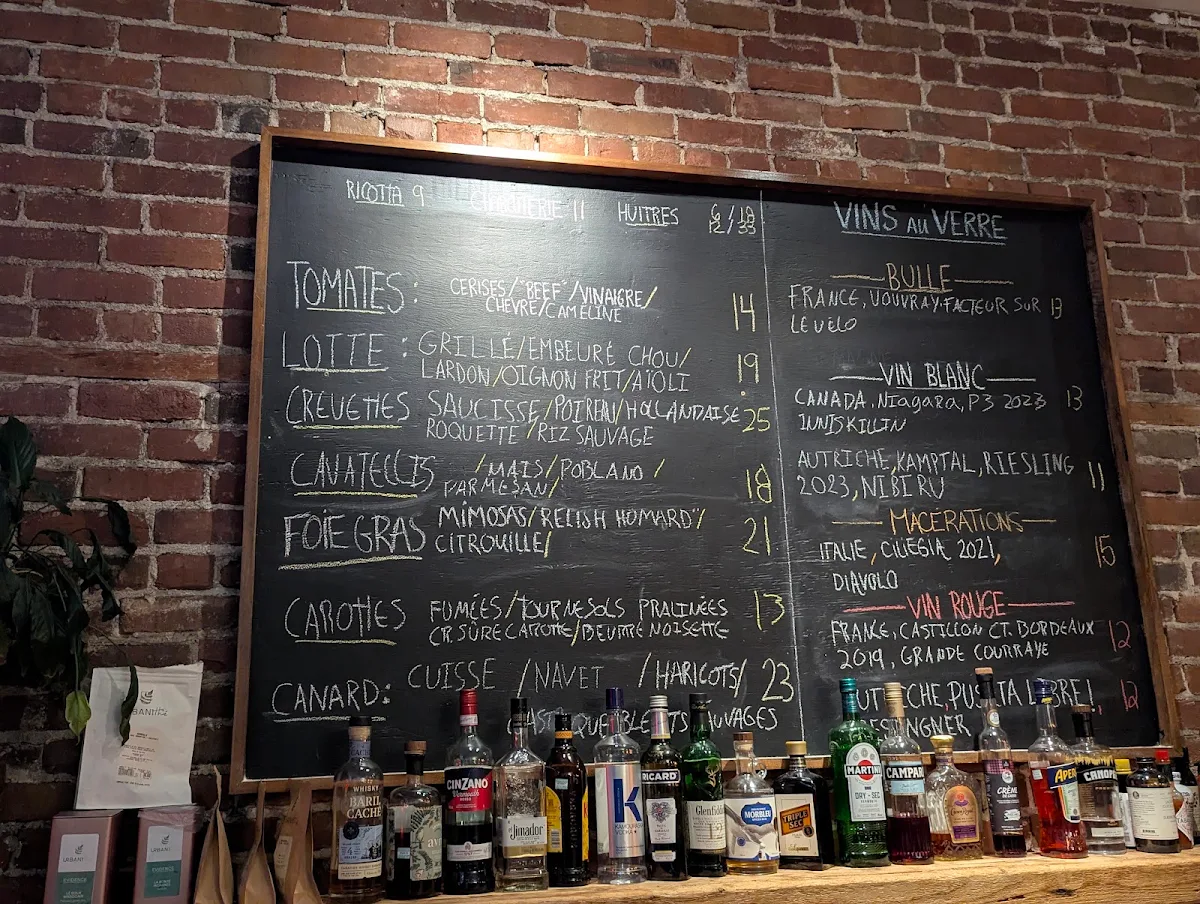 RICOTTA 9 CHARCUTERIE 11 HUITRES 6/18
12/33
TOMATES: CERISES/"BEEF"/VINAIGRE/
CHEVRE/CAMELINE 14
LOTTE: GRILLÉ/EMBEURÉ CHOU/
LARDON/OIGNON FRIT/AÏOLI 19
CREVETTES SAUCISSE/POIREAU/HOLLANDAISE 25
ROQUETTE/RIZ SAUVAGE
CAVATELLIS /MAIS/POBLANO/
PARMESAN/ 18
FOIE GRAS MIMOSAS/RELISH HOMARD/
CITROUILLE/ 21
CAROTTES FUMÉES/TOURNESOLS PRALINÉES 13
CR. SÛRE CAROTTE/BEURRE NOISETTE
CANARD: CUISSE /NAVET /HARICOTS/ 23
VINS AU VERRE
BULLE
FRANCE, VOUVRAY-FACTEUR SUR 13
LE VÉLO
VIN BLANC
CANADA, NIAGARA, P3 2023 13
INNISKILLIN
AUTRICHE, KAMPTAL, RIESLING
2023, NIBIRU 11
MACÉRATIONS
ITALIE, CILIEGIA 2021, 15
DIAVOLO
VIN ROUGE
FRANCE, CASTILLON CT. BORDEAUX 12
2019, GRANDE COURRAYE
PUSZTA LIBRE! 12
URBANI
URBANI
WHISKY
BARIL
CACHÉ
CINZANO
Vermouth
el Jimador
K
KAMOURASKA
VODKA
RICARD
Glenfiddich
12
MORBLEU
TRIPLE
SEC
MARTINI
DRY-SEC
CAMPARI
CRÈME
APEROL
CANOP